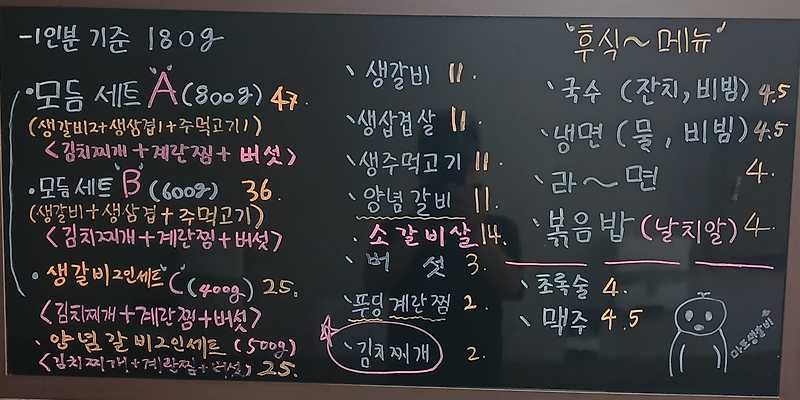 -1인분 기준 180g
•모듬세트 A (800g) 47.
(생갈비2+생삼겹1+주먹고기1)
<김치찌개+계란찜+버섯>
•모듬세트 B (600g) 36
(생갈비+생삼겹+주먹고기)
<김치찌개+계란찜+버섯>
• 생갈비2인세트 C (400g) 25.
<김치찌개+계란찜+버섯>
、양념갈비2인세트 (500g)
<김치찌개+계란찜+버섯> 25.
、생갈비 11.
、생삼겹살 11.
、생주먹고기 11
、양념갈비 11.
. 소갈비살 14.
、버섯 3.
、푸딩계란찜 2.
、김치찌개 2.
"후식~메뉴"
、국수 (잔치, 비빔) 4.5
、냉면 (물, 비빔) 4.5
、라~면 4.
、볶음밥 (날치알) 4.
、초록술 4.
、맥주 4.5
마포생갈비